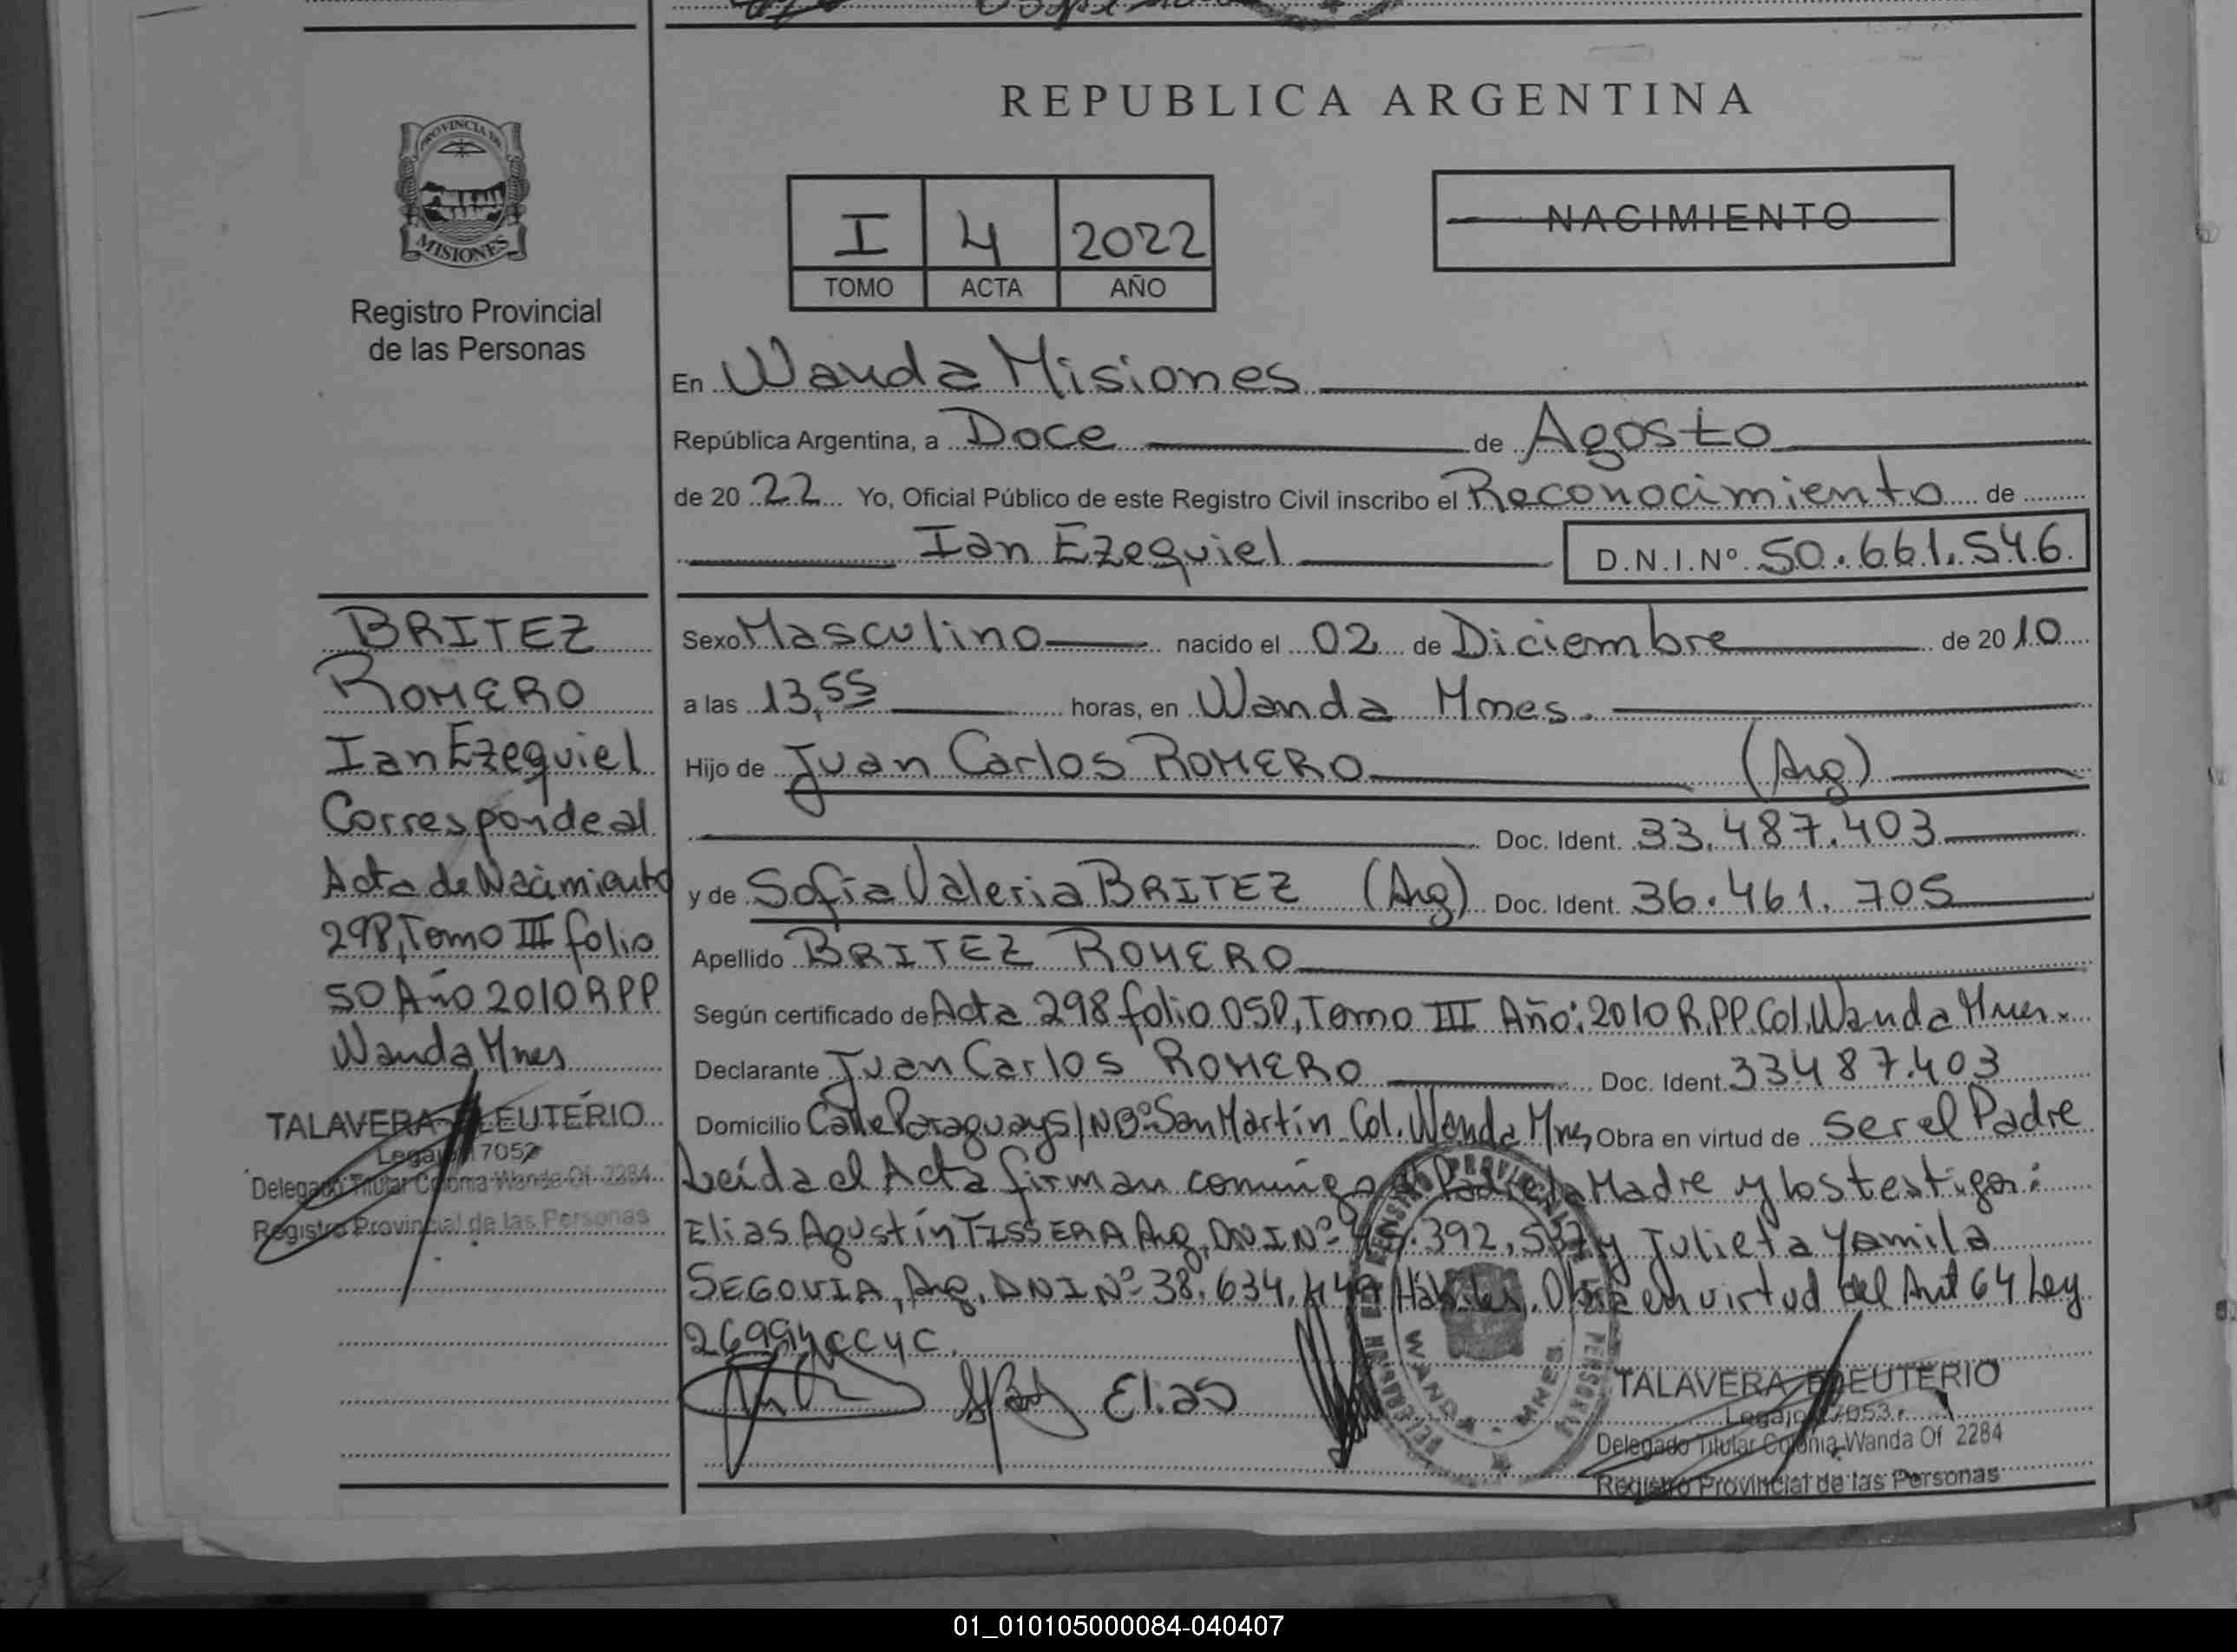 REPUBLICA ARGENTINA
PROVINCIA DE
MISIONES
Registro Provincial
de las Personas
I 4 2022
TOMO ACTA AÑO
NACIMIENTO
En Wanda Misiones
República Argentina, a Doce de Agosto
de 20 22 Yo, Oficial Público de este Registro Civil inscribo el Reconocimiento de
Ian Ezequiel D.N.I.Nº 50.661.546.
Sexo Masculino nacido el 02 de Diciembre de 20 10
a las 13,55 horas, en Wanda Mnes.
Hijo de Juan Carlos ROMERO (Arg)
Doc. Ident. 33.487.403
y de Sofia Valeria BRITEZ (Arg) Doc. Ident. 36.461.705
Apellido BRITEZ ROMERO
Según certificado de Acta 298 folio 050, Tomo III Año: 2010 R.PP. Col. Wanda Mnes.
Declarante Juan Carlos ROMERO Doc. Ident. 33487.403
Domicilio Calle Paraguay S/N Bº San Martín Col. Wanda Mnes Obra en virtud de ser el Padre
Leída el Acta firman conmigo el Padre la Madre y los testigos:
Elias Agustín TISSERA Arg, DNI Nº .392, y Julieta Yamila
SEGOVIA, Arg, DNI Nº 38.634. Hábiles. Obra en virtud del Art 64 Ley
26994 CCYC.
Elias
WANDA - MNES.
TALAVERA ELEUTERIO
Legajo 17053
Delegado Titular Colonia Wanda Of 2284
Registro Provincial de las Personas
BRITEZ
ROMERO
Ian Ezequiel
Corresponde al
Acta de Nacimiento
298, Tomo III folio
50 Año 2010 RPP
Wanda Mnes
TALAVERA ELEUTERIO
Legajo 17053
Delegado Titular Colonia Wanda Of 2284
Registro Provincial de las Personas
01_010105000084-040407